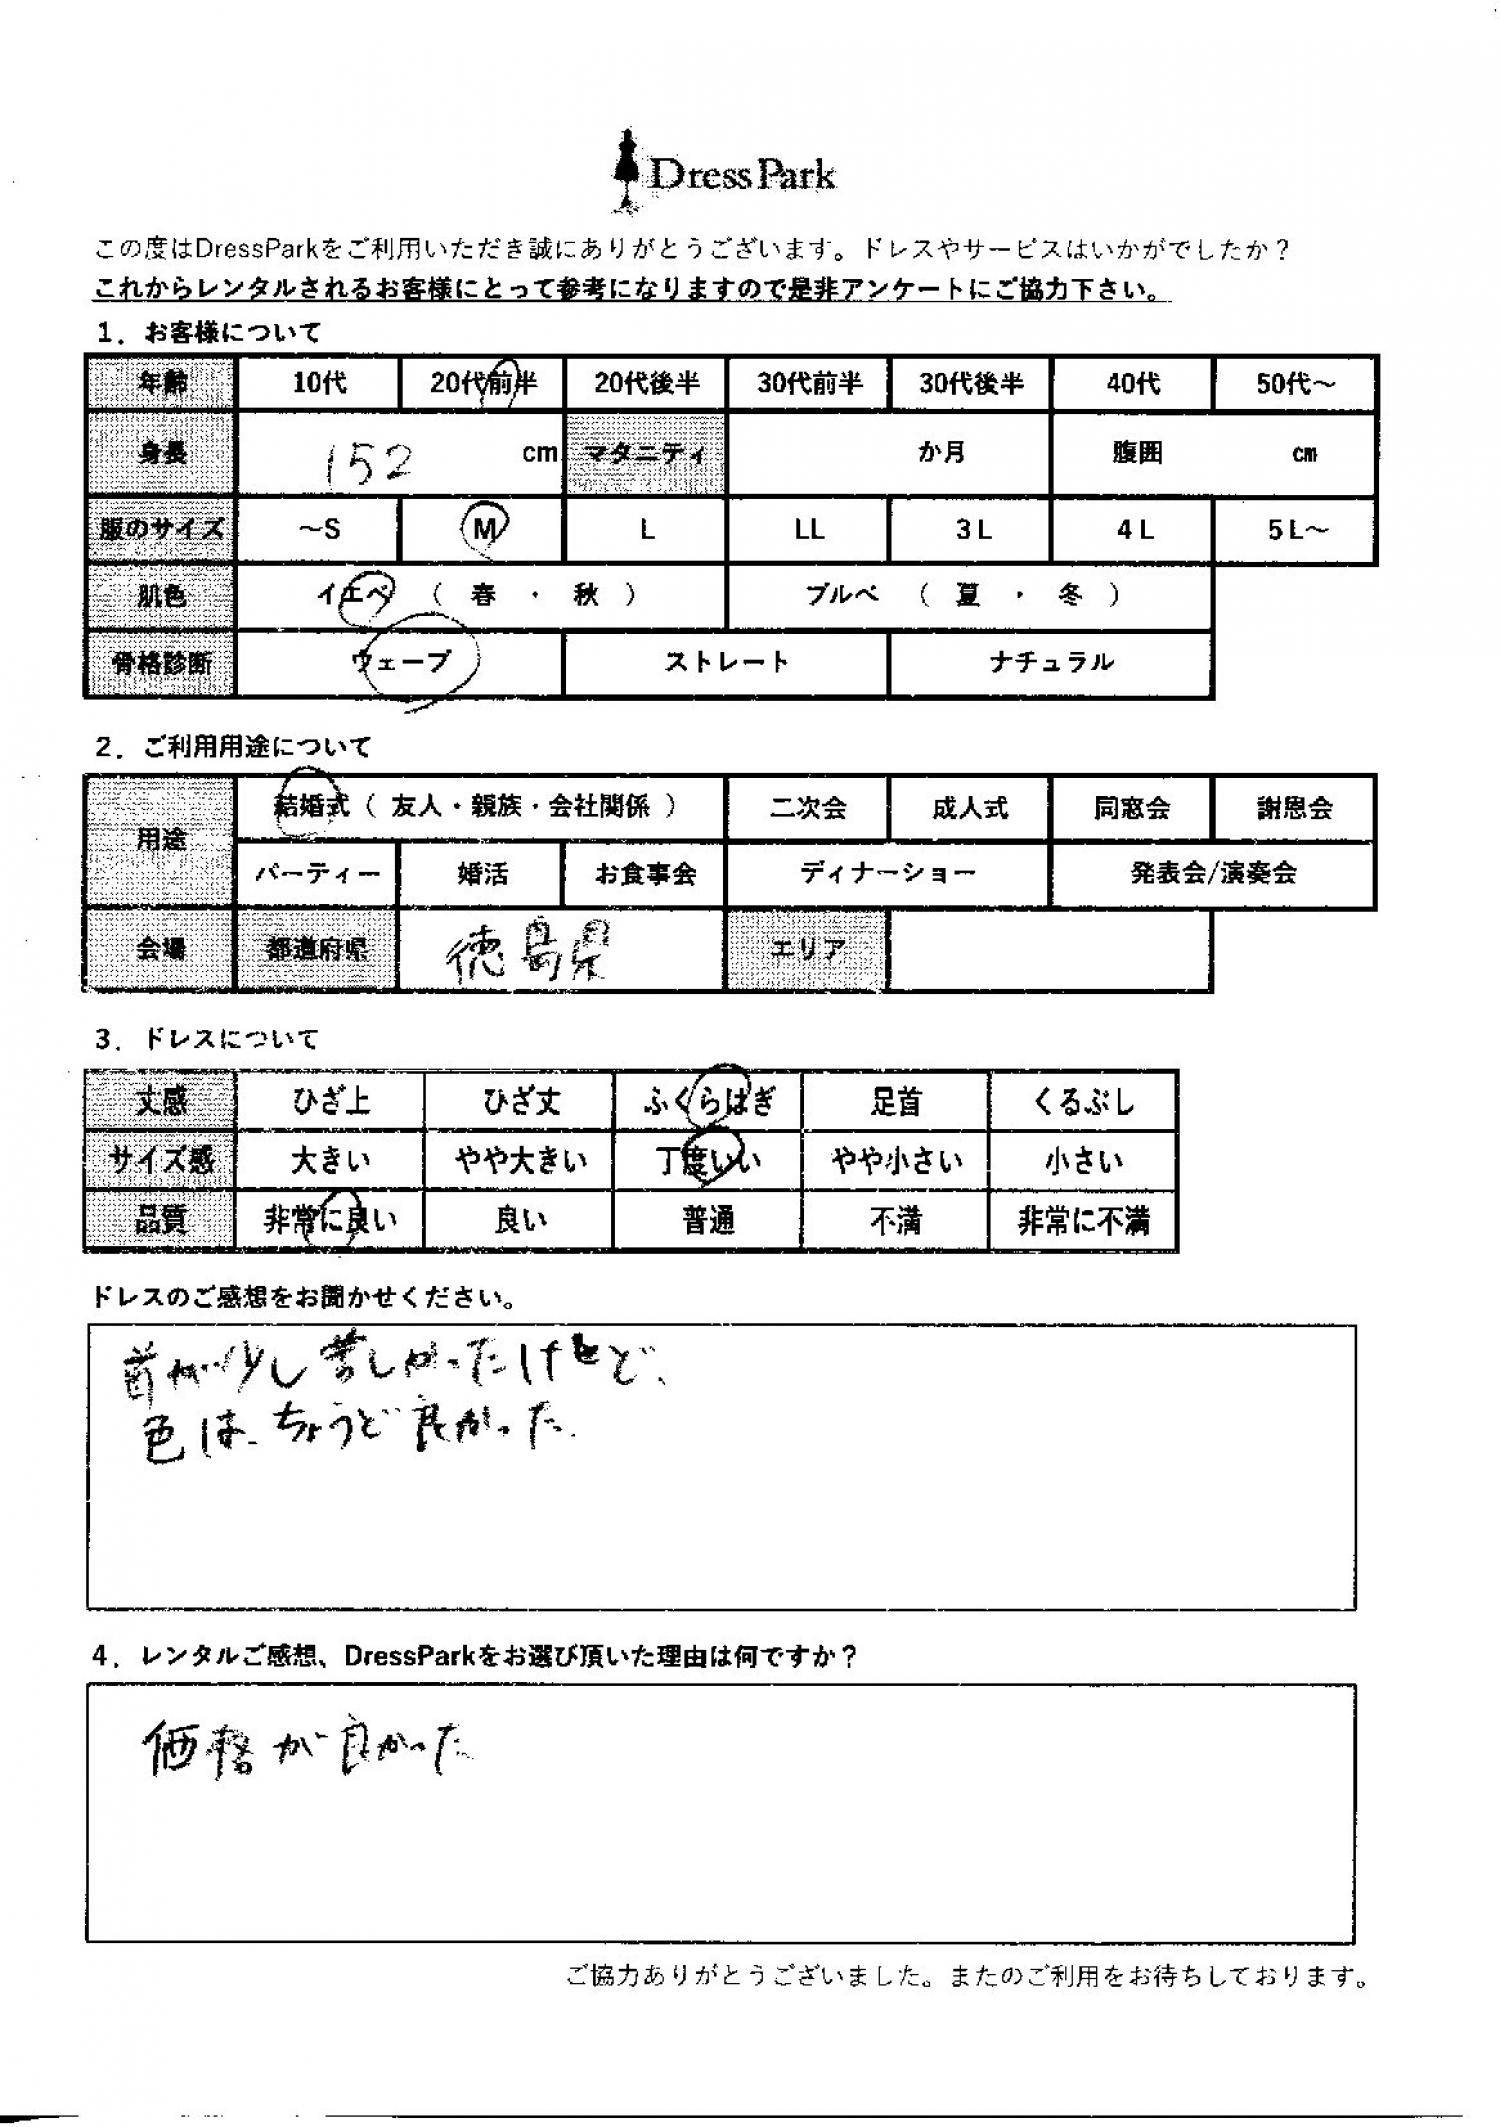 DressPark
この度はDressParkをご利用いただき誠にありがとうございます。ドレスやサービスはいかがでしたか？
これからレンタルされるお客様にとって参考になりますので是非アンケートにご協力下さい。
1．お客様について
年齢 10代 20代前半 20代後半 30代前半 30代後半 40代 50代～
身長 152 cm マタニティ か月 腹囲 cm
服のサイズ ～S M L LL 3L 4L 5L～
肌色 イエベ （ 春 ・ 秋 ） ブルベ （ 夏 ・ 冬 ）
骨格診断 ウェーブ ストレート ナチュラル
2．ご利用用途について
用途 結婚式（ 友人・親族・会社関係 ） 二次会 成人式 同窓会 謝恩会
パーティー 婚活 お食事会 ディナーショー 発表会/演奏会
会場 都道府県 徳島県 エリア
3．ドレスについて
丈感 ひざ上 ひざ丈 ふくらはぎ 足首 くるぶし
サイズ感 大きい やや大きい 丁度いい やや小さい 小さい
品質 非常に良い 良い 普通 不満 非常に不満
ドレスのご感想をお聞かせください。
首が少し苦しかったけど、
色は、ちょうど良かった.
4．レンタルご感想、DressParkをお選び頂いた理由は何ですか？
価格が良かった
ご協力ありがとうございました。またのご利用をお待ちしております。